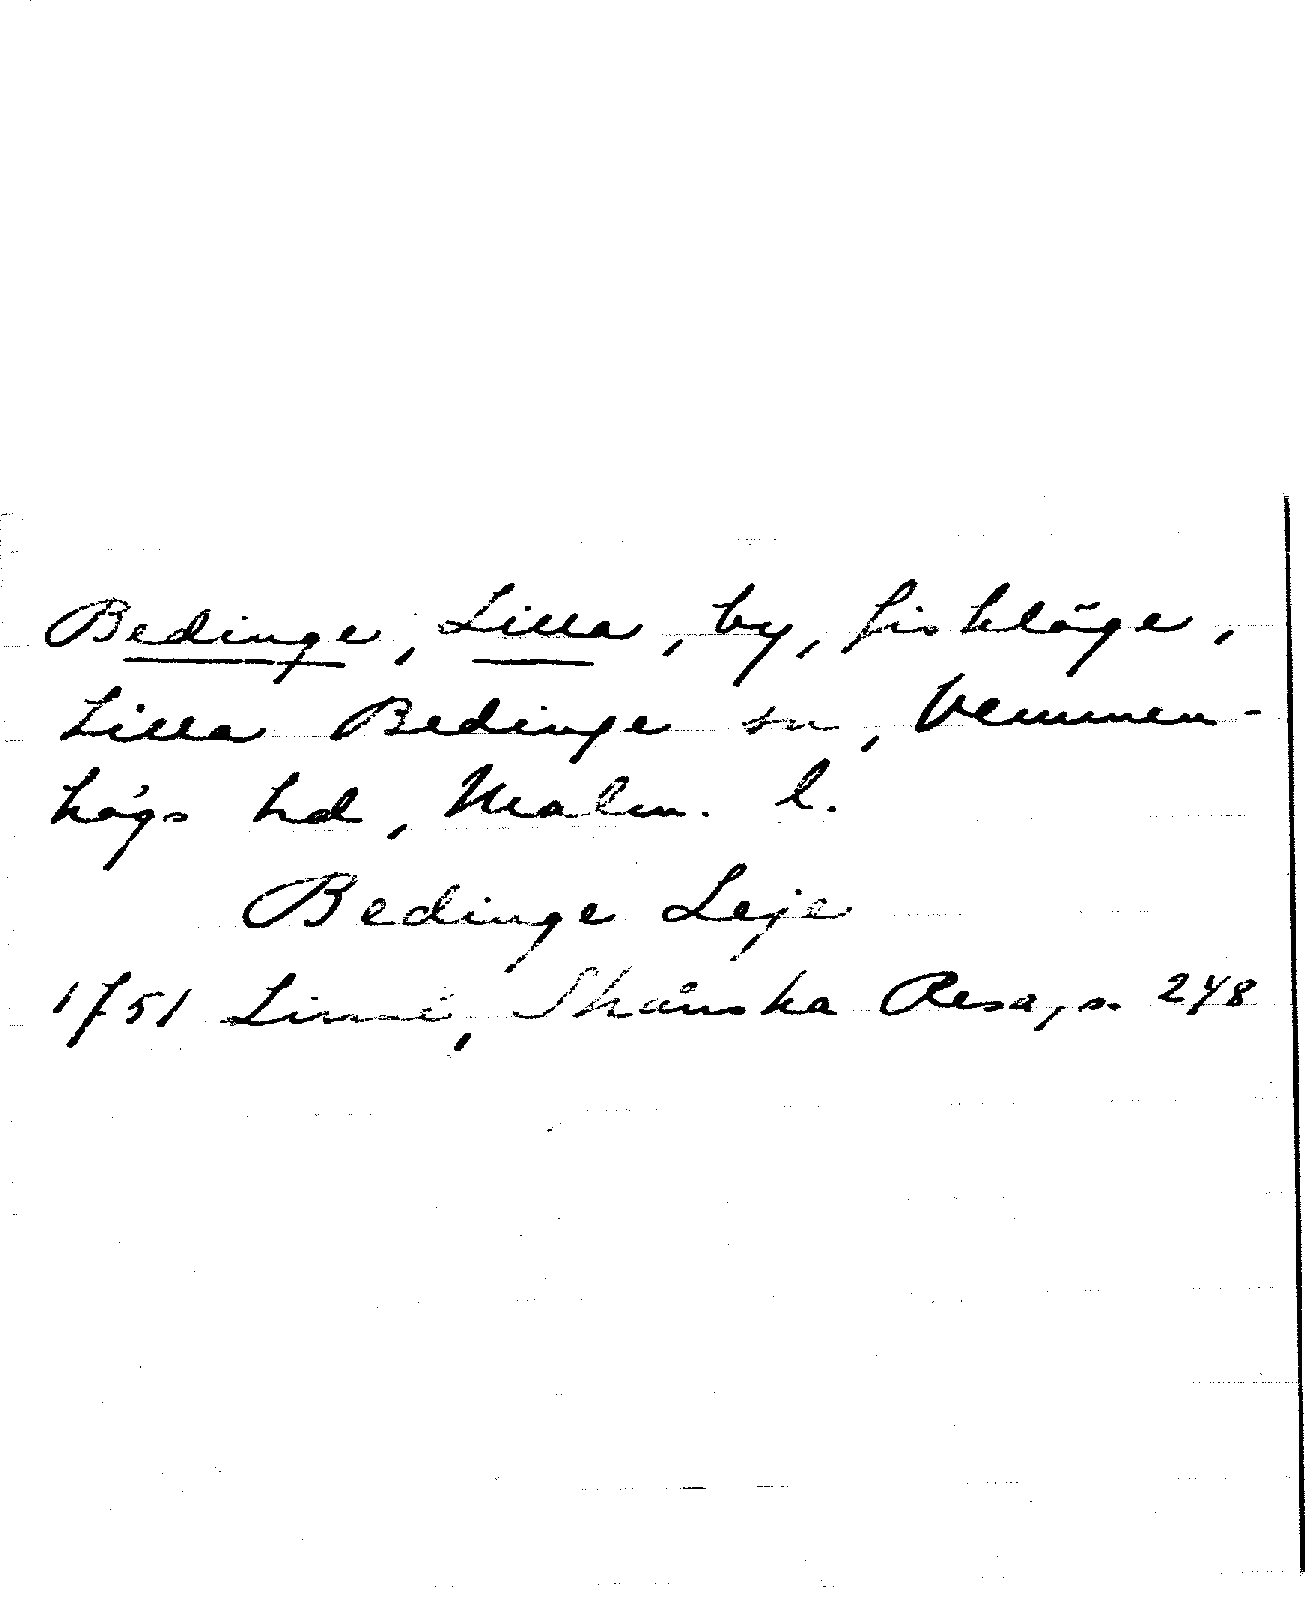 Bedinge, Lilla, by, fiskläge,
Lilla Bedinge sn, Vemmen-
högs hd, Malm. l.
Bedinge Leje
1751 Linné, Skånska Resa, s. 248